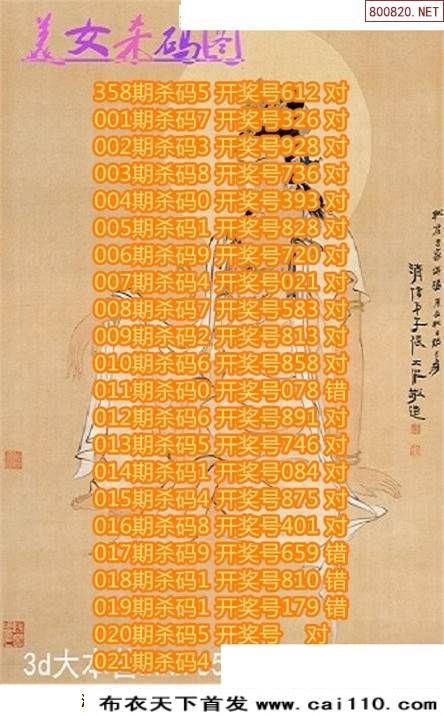 800820.NET
美女杀码图
358期杀码5 开奖号612 对
001期杀码7 开奖号326 对
002期杀码3 开奖号928 对
003期杀码8 开奖号736 对
004期杀码0 开奖号393 对
005期杀码1 开奖号828 对
006期杀码9 开奖号720 对
007期杀码4 开奖号021 对
008期杀码7 开奖号583 对
009期杀码2 开奖号813 对
010期杀码6 开奖号838 对
011期杀码0 开奖号078 错
012期杀码6 开奖号891 对
013期杀码5 开奖号746 对
014期杀码1 开奖号084 对
015期杀码4 开奖号875 对
016期杀码8 开奖号401 对
017期杀码9 开奖号659 错
018期杀码1 开奖号810 错
019期杀码1 开奖号179 错
020期杀码5 开奖号 对
3d大本
021期杀码4
布衣天下首发 www.cai110.com